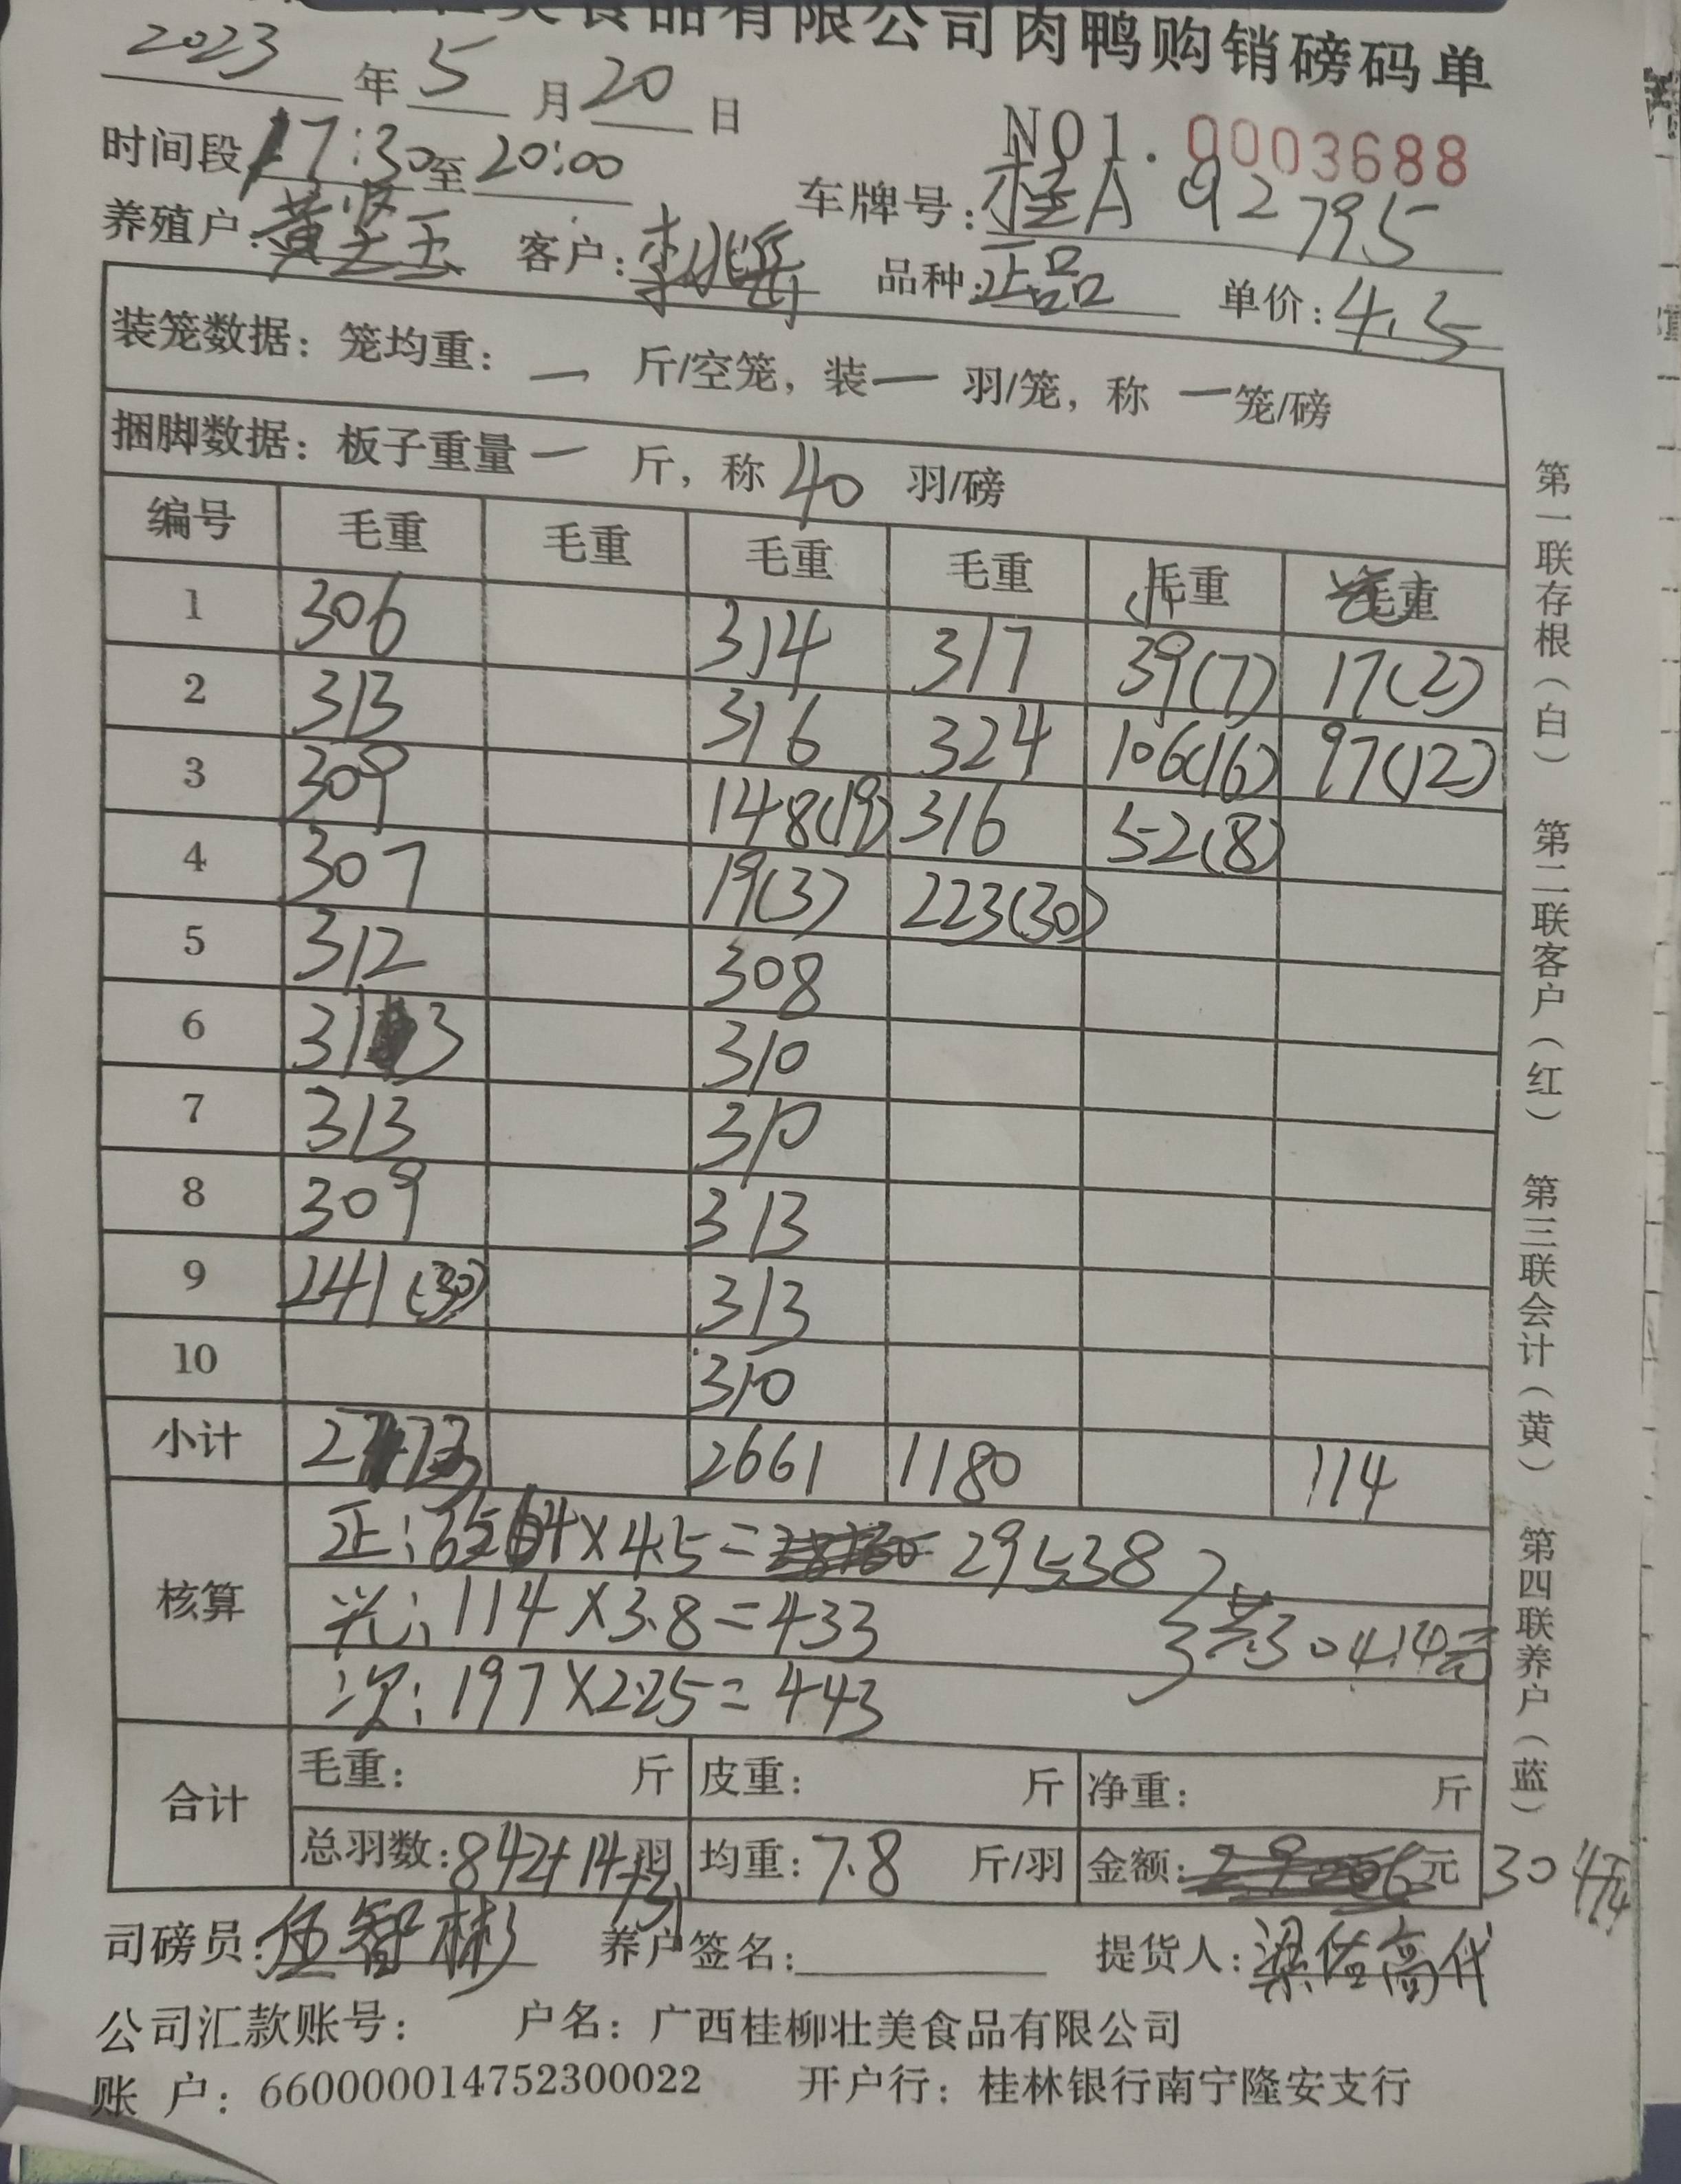 美食品有限公司肉鸭购销磅码单
2023年5月20日
NO1.0003688
时间段17:30至20:00 车牌号:桂A92795
养殖户:黄坚玉 客户: 品种:正品 单价:4.5
装笼数据:笼均重:一斤/空笼,装一羽/笼,称一笼/磅
捆脚数据:板子重量一斤,称40羽/磅
编号 毛重 毛重 毛重 毛重 毛重 毛重
1 306 314 317 39(7) 17(2)
2 313 316 324 106(16) 97(12)
3 309 148(19) 316 52(8)
4 307 19(3) 223(30)
5 312 308
6 313 310
7 313 310
8 309 313
9 241(30) 313
10 310
小计 2723 2661 1180 114
核算
正:6564×4.5=29538
光:114×3.8=433 共30414元
次:197×2.25=443
合计
毛重: 斤 皮重: 斤 净重: 斤
总羽数:842+14羽 均重:7.8斤/羽 金额: 元 30414
司磅员:伍智彬 养户签名: 提货人:梁佐高代
公司汇款账号: 户名:广西桂柳壮美食品有限公司
账 户:660000014752300022 开户行:桂林银行南宁隆安支行
第一联存根(白) 第二联客户(红) 第三联会计(黄) 第四联养户(蓝)